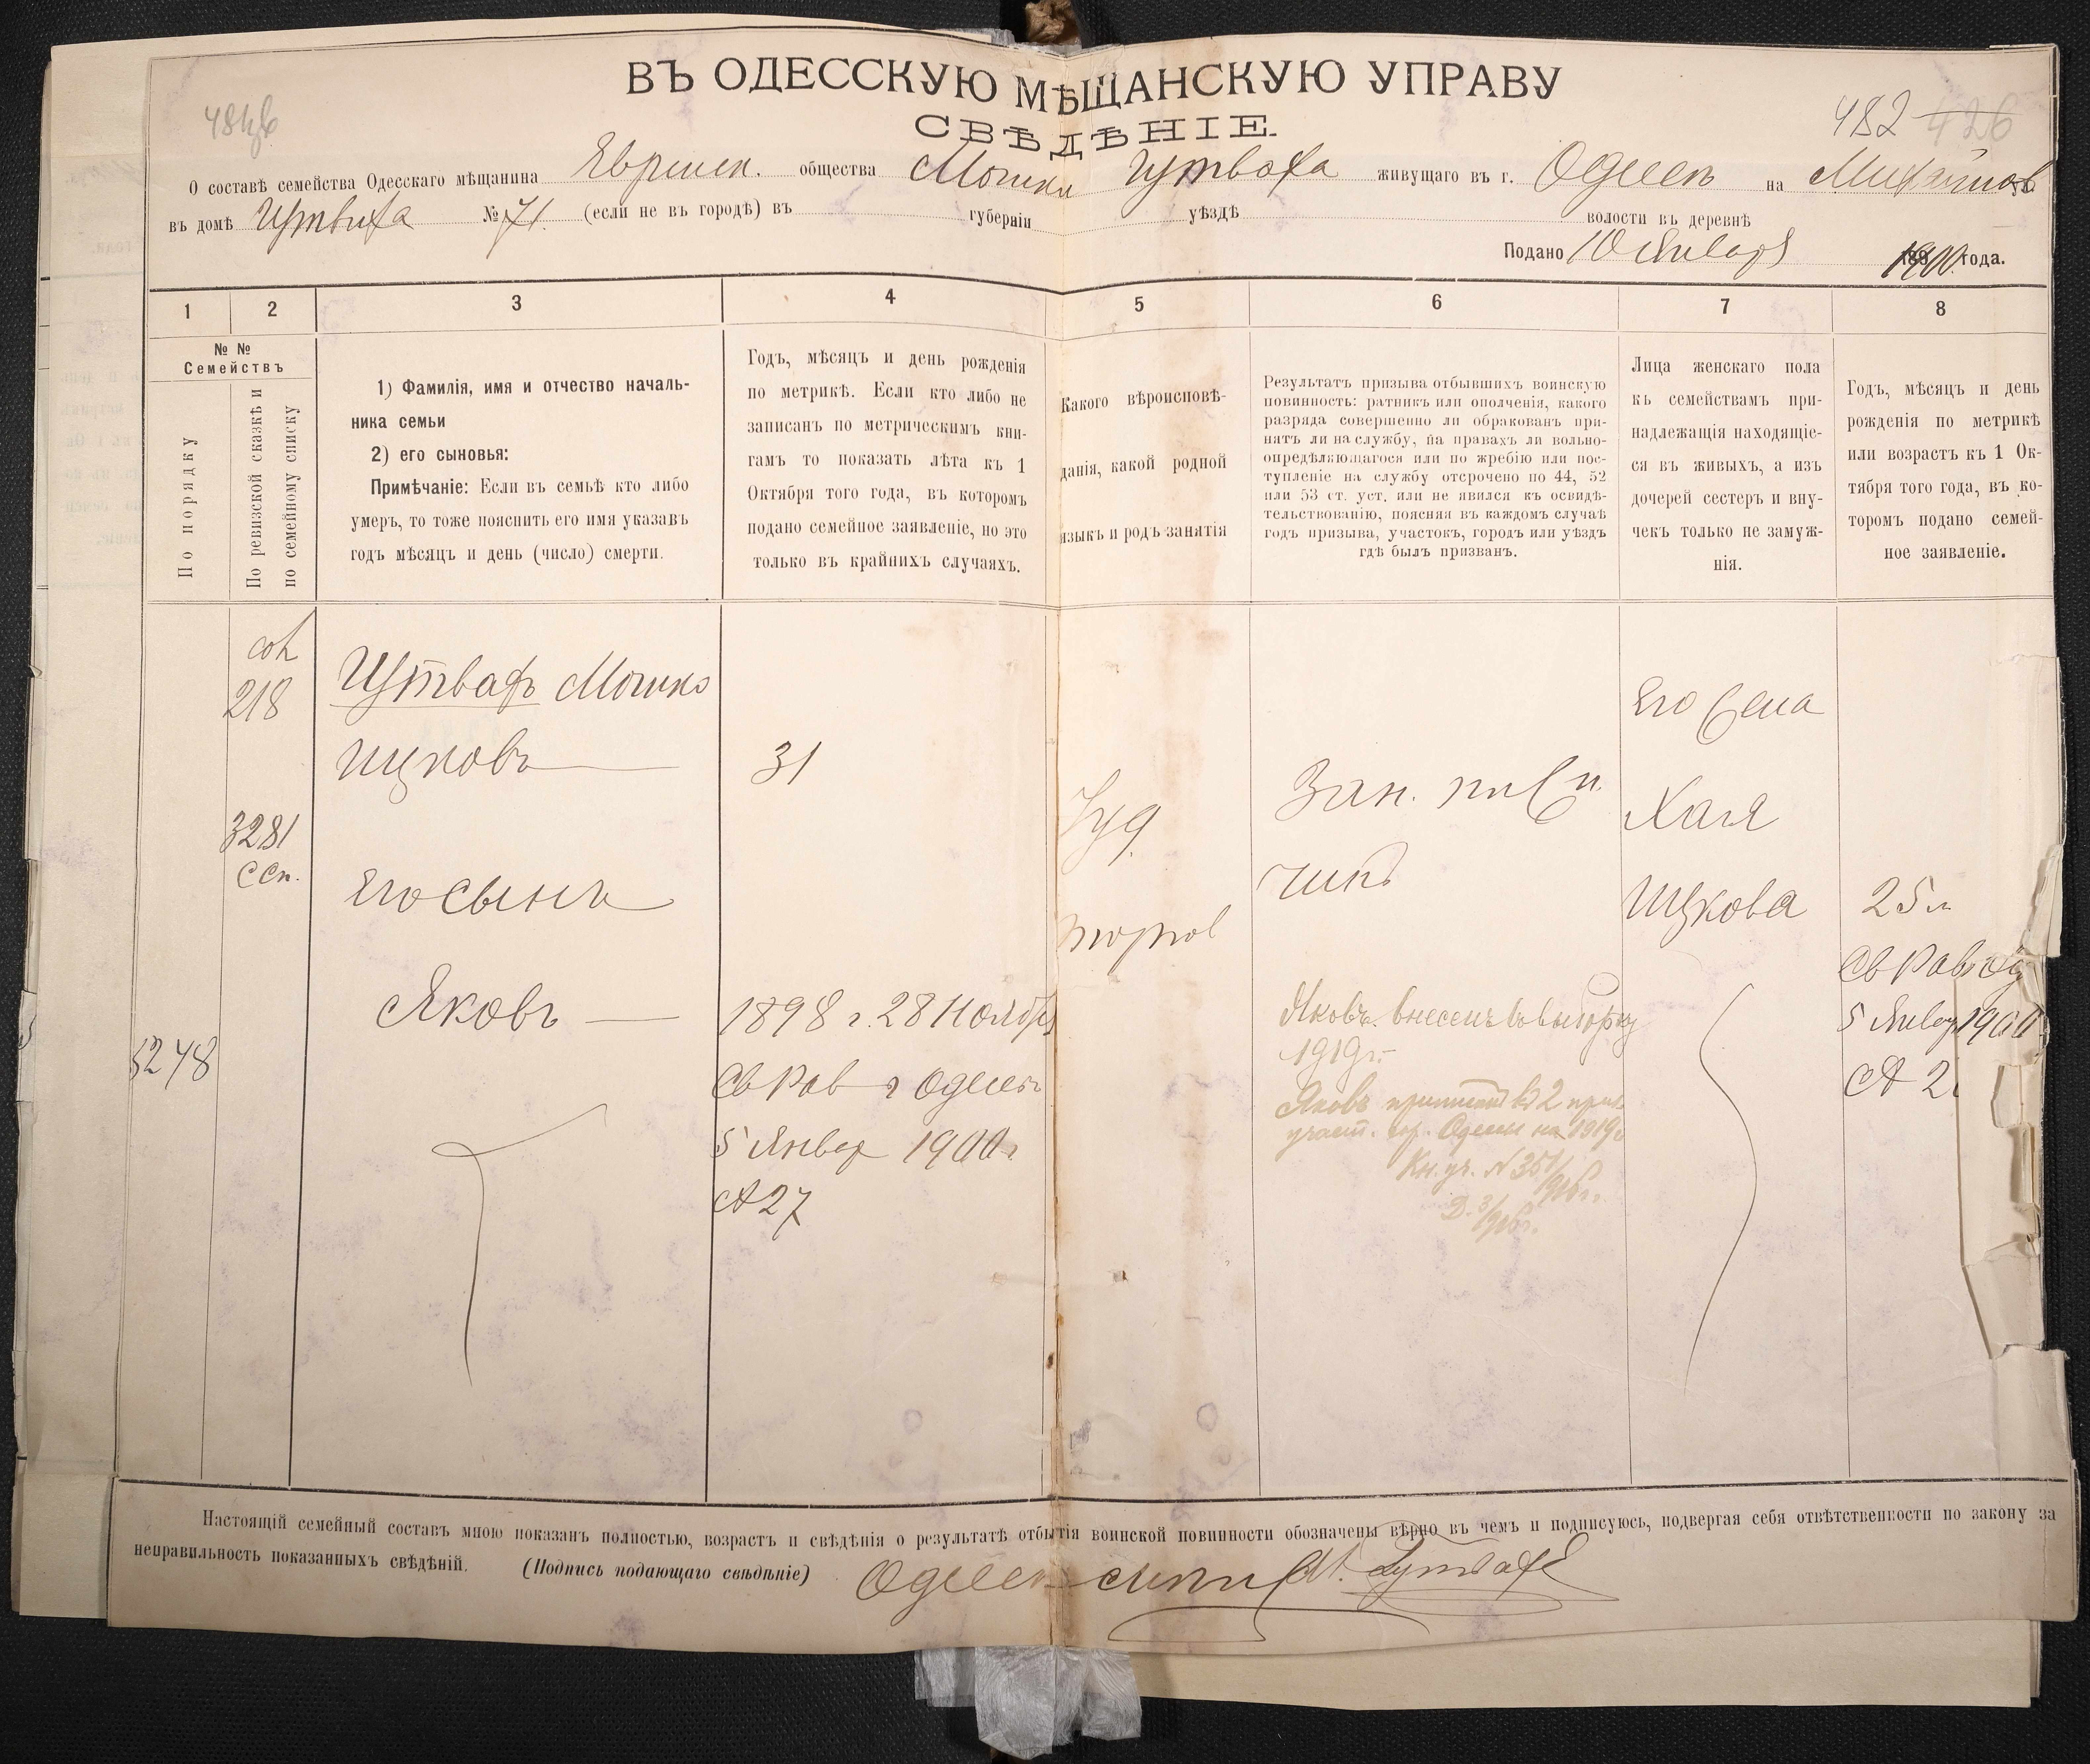 ВЪ ОДЕССКУЮ МѢЩАНСКУЮ УПРАВУ
482 426
СВѢДѢНІЕ.
О составѣ семейства Одесскаго мѣщанина Евреиск. общества Мошки Гутваха живущаго въ г. Одессѣ на
въ домѣ № 71. (если не въ городѣ) въ губерніи уѣздѣ волости въ деревнѣ
Подано 10 Января 1900 года.
1 2 3 4 5 6 7 8
№ №
Семействъ
По порядку
По ревизской сказкѣ и
по семейному списку
1) Фамилія, имя и отчество началь-
ника семьи
2) его сыновья:
Примѣчаніе: Если въ семьѣ кто либо
умеръ, то тоже пояснить его имя указавъ
годъ мѣсяцъ и день (число) смерти.
Годъ, мѣсяцъ и день рожденія
по метрикѣ. Если кто либо не
записанъ по метрическимъ кни-
гамъ то показать лѣта къ 1
Октября того года, въ которомъ
подано семейное заявленіе, но это
только въ крайнихъ случаяхъ.
Какого вѣроисповѣ-
данія, какой родной
языкъ и родъ занятія
Результатъ призыва отбывшихъ воинскую
повинность: ратникъ или ополченія, какого
разряда совершенно ли обракованъ при-
нятъ ли на службу, на правахъ ли вольно-
опредѣляющагося или по жребію или пос-
тупленіе на службу отсрочено по 44, 52
или 53 ст. уст. или не явился къ освидѣ-
тельствованію, поясняя въ каждомъ случаѣ
годъ призыва, участокъ, городъ или уѣздъ
гдѣ былъ призванъ.
Лица женскаго пола
къ семействамъ при-
надлежащія находящіе-
ся въ живыхъ, а изъ
дочерей сестеръ и вну-
чекъ только не замуж-
нія.
Годъ, мѣсяцъ и день
рожденія по метрикѣ
или возрастъ къ 1 Ок-
тября того года, въ ко-
торомъ подано семей-
ное заявленіе.
218
Мошко
Ицковъ
31
3281
ССп.
Его сынъ
Яковъ
5248
1898 г. 28 Ноября
Св Рав г Одессы
5 Январ 1900 г
№ 27
Іуд.
торгов
Зап.
Яковъ внесенъ въ выборку
1919 г.
Яковъ приписанъ къ 2 приз.
участ. гор. Одессы на 1919 г
Кн. уч. № 351/
Его жена
Хая
Ицкова
25 л
Св Рав Од
5 Январ 1900
№ 2
Настоящій семейный составъ мною показанъ полностью, возрастъ и свѣдѣнія о результатѣ отбытія воинской повинности обозначены вѣрно въ чемъ и подписуюсь, подвергая себя отвѣтственности по закону за
неправильность показанныхъ свѣдѣній. (Подпись подающаго свѣдѣніе) М. Гутвахъ